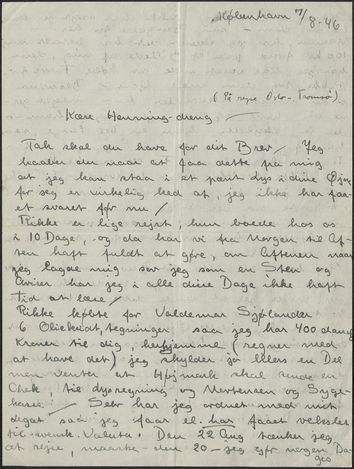 København 7/8-46
(På rejse Oslo-Tromsø)
Kære Henning-dreng —
Tak skal du have for dit Brev / Jeg
haaber du naar at faa dette fra mig
at jeg kan staa i et pænt lys i dine Øjne
for jeg er virkelig ked at, jeg ikke har faa-
et svaret før nu /
Rikke er lige rejst, hun boede hos os
i 10 Dage, og da har vi fra Morgen til Af-
ten haft fuldt at göre, om Aftenen naar
jeg lagde mig sov jeg som en Sten og
Aviser har jeg i alle dine Dage ikke haft
Tid at læse /
Rikke købte for Valdemar Sjølander
6 Oliekridt tegninger saa jeg har 400 danske
Kroner til dig, herhjemme (regner med
at have det) jeg skylder jo Ellers en Del
men venter at
Chek, til og Mortensen og Syge-
kasse / Selv har jeg ordnet med mit
saa jeg faar el. har faaet vekslet
til svensk Valuta. Den 22 Aug tænker jeg
at rejse, maaske den 20 — jeg